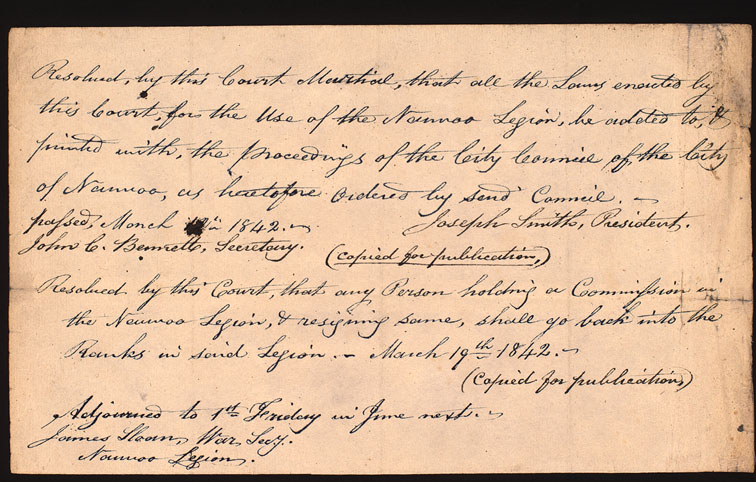 Resolved, by this Court Martial, that all the Laws enacted by
this Court, for the Use of the Nauvoo Legion, be added to, &
printed with, the proceedings of the City Council of the City
of Nauvoo, as heretofore ordered by said Council. –
passed, March 12th 1842. – Joseph Smith, President.
John C. Bennett, Secretary.
(copied for publication,)
Resolved by this Court, that any Person holding a Commission in
the Nauvoo Legion, & resigning same, shall go back into the
Ranks in said Legion. – March 19th 1842. –
(copied for publication,)
Adjourned to 1st Friday in June next. –
James Sloan, War Secy.
Nauvoo Legion.